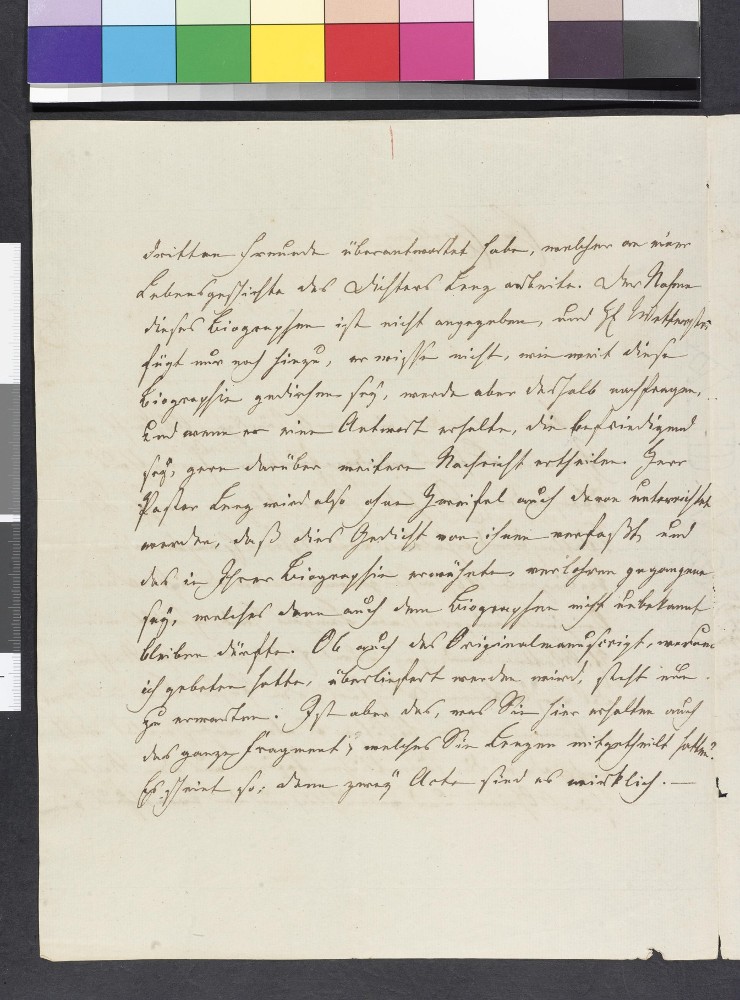 dritten Freunde überantwortet habe, welcher an einer
Lebensgeschichte des Dichters Lenz arbeite. Der Nahme
dieses Biographen ist nicht angegeben, und H
fügt nur noch hinzu, er wisse nicht, wie weit diese
Biographie gediehen sey, werde aber deshalb nachfragen,
und wenn er eine Antwort erhalte, die befriedigend
sey, gern darüber weitere Nachricht ertheilen. Herr
Pastor Lenz wird also ohne Zweifel auch davon unterrichtet
werden, daß dies Gedicht von ihnen verfaßt, und
das in Ihrer Biographie erwähnte, verlohren gegangene
sey, welches dann auch dem Biographen nicht unbekannt
bleiben dürfte. Ob auch das Originalmanuscript, warum
ich gebeten hatte, überliefert werden wird, steht nun
zu erwarten. Ist aber das, was Sie hier erhalten auch
das ganze Fragment, welches Sie Lenzen mitgetheilt hatten?
Es scheint so: denn zwey Acte sind es wirklich. —